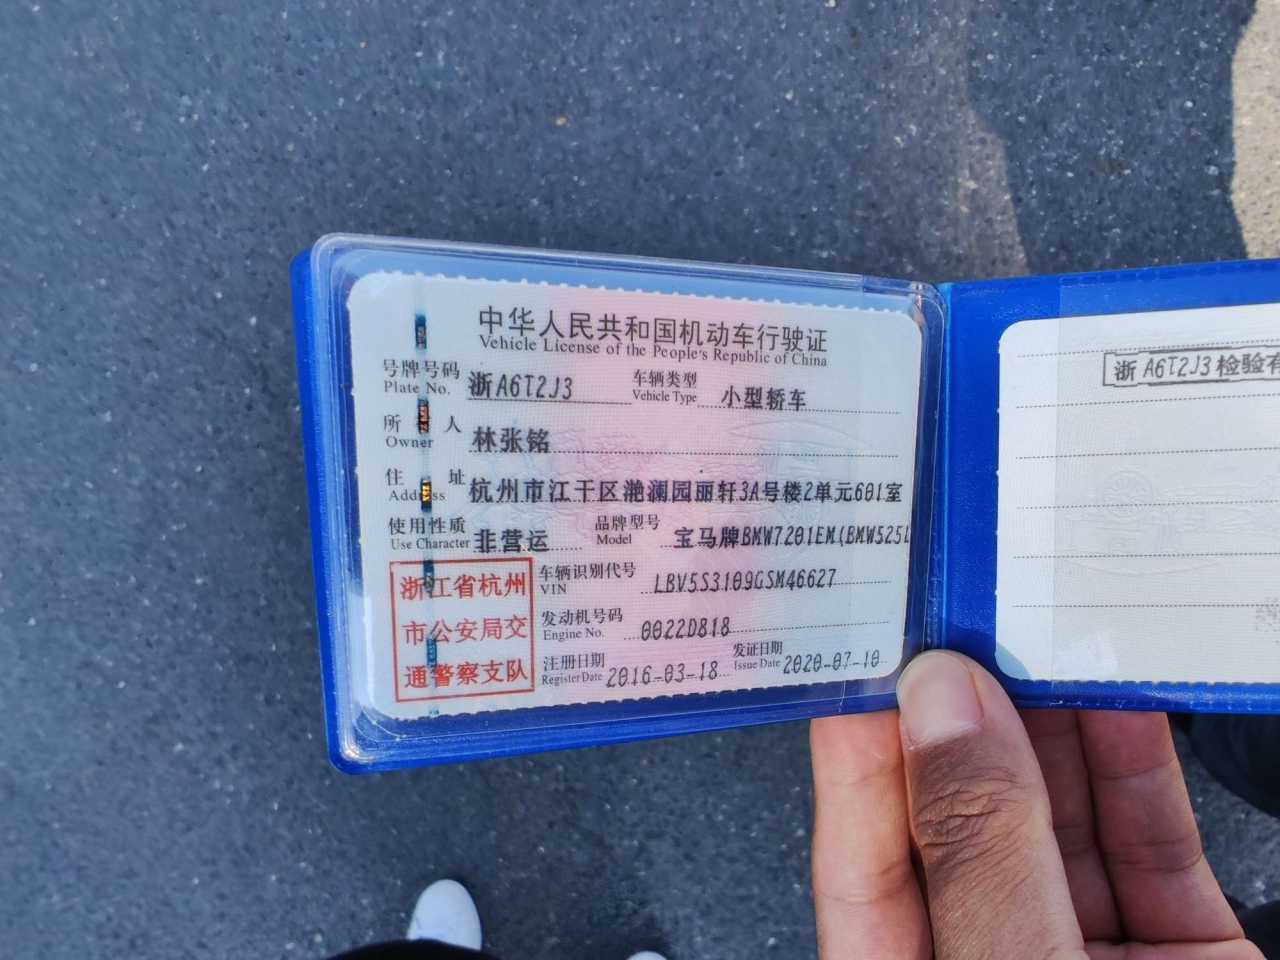 中华人民共和国机动车行驶证
Vehicle License of the People's Republic of China
号牌号码 浙A6T2J3 车辆类型 小型轿车
Plate No. Vehicle Type
所 人 林张铭
Owner
住 址 杭州市江干区滟澜园丽轩3A号楼2单元601室
Address
使用性质 非营运 品牌型号 宝马牌BMW7201EM(BMW525L
Use Character Model
浙江省杭州
市公安局交
通警察支队
车辆识别代号 LBV5S3109GSM46627
VIN
发动机号码 0022D818
Engine No.
注册日期 2016-03-18 发证日期 2020-07-10
Register Date Issue Date
浙A6T2J3检验有